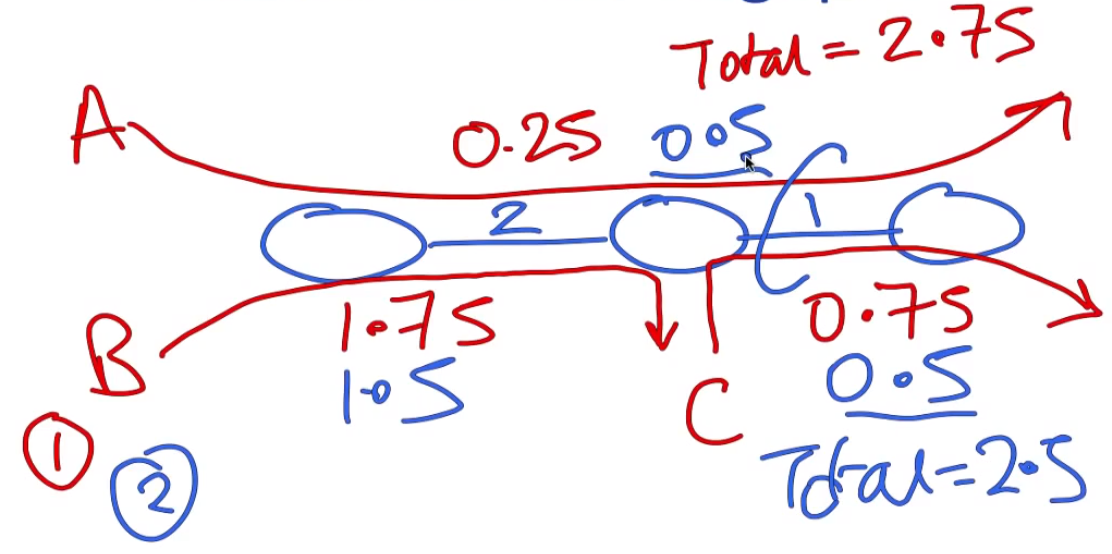 Total = 2.75
A
0.25 0.5
2
1
1.75
0.75
B
1.5
0.5
C
1
2
Total = 2.5